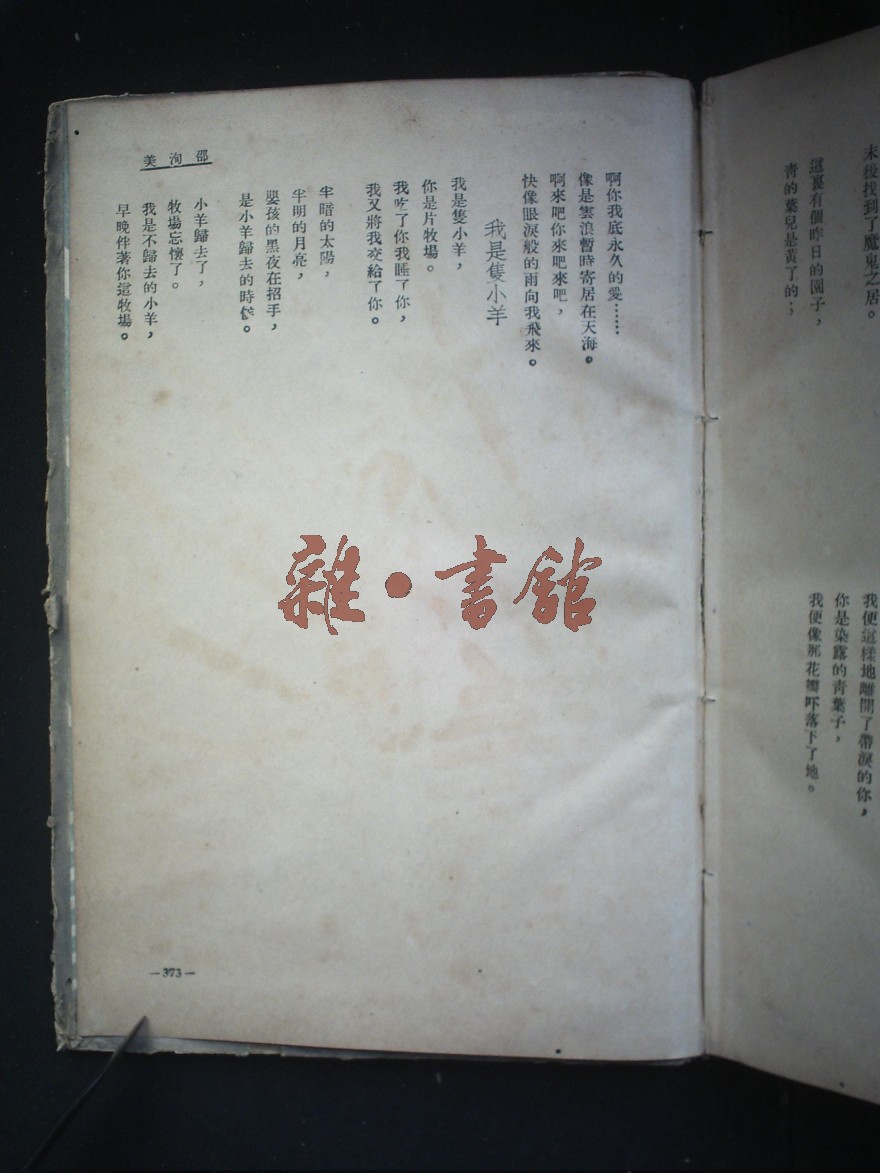 末後找到了魔鬼之居。
這裏有個昨日的園子，
青的葉兒是黃了的；
我便這樣地離開了帶淚的你，
你是染露的青葉子，
我便像那花瓣吓落下了地。
邵洵美
啊你我底永久的愛……
像是雲浪暫時寄居在天海。
啊來吧你來吧來吧，
快像眼淚般的雨向我飛來。
我是隻小羊
我是隻小羊，
你是片牧場。
我吃了你我睡了你，
我又將我交給了你。
半暗的太陽，
半明的月亮，
嬰孩的黑夜在招手，
是小羊歸去的時候。
小羊歸去了，
牧場忘懷了。
我是不歸去的小羊，
早晚伴著你這牧場。
—373—
雜·書館